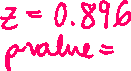 z = 0.896
pvalue =